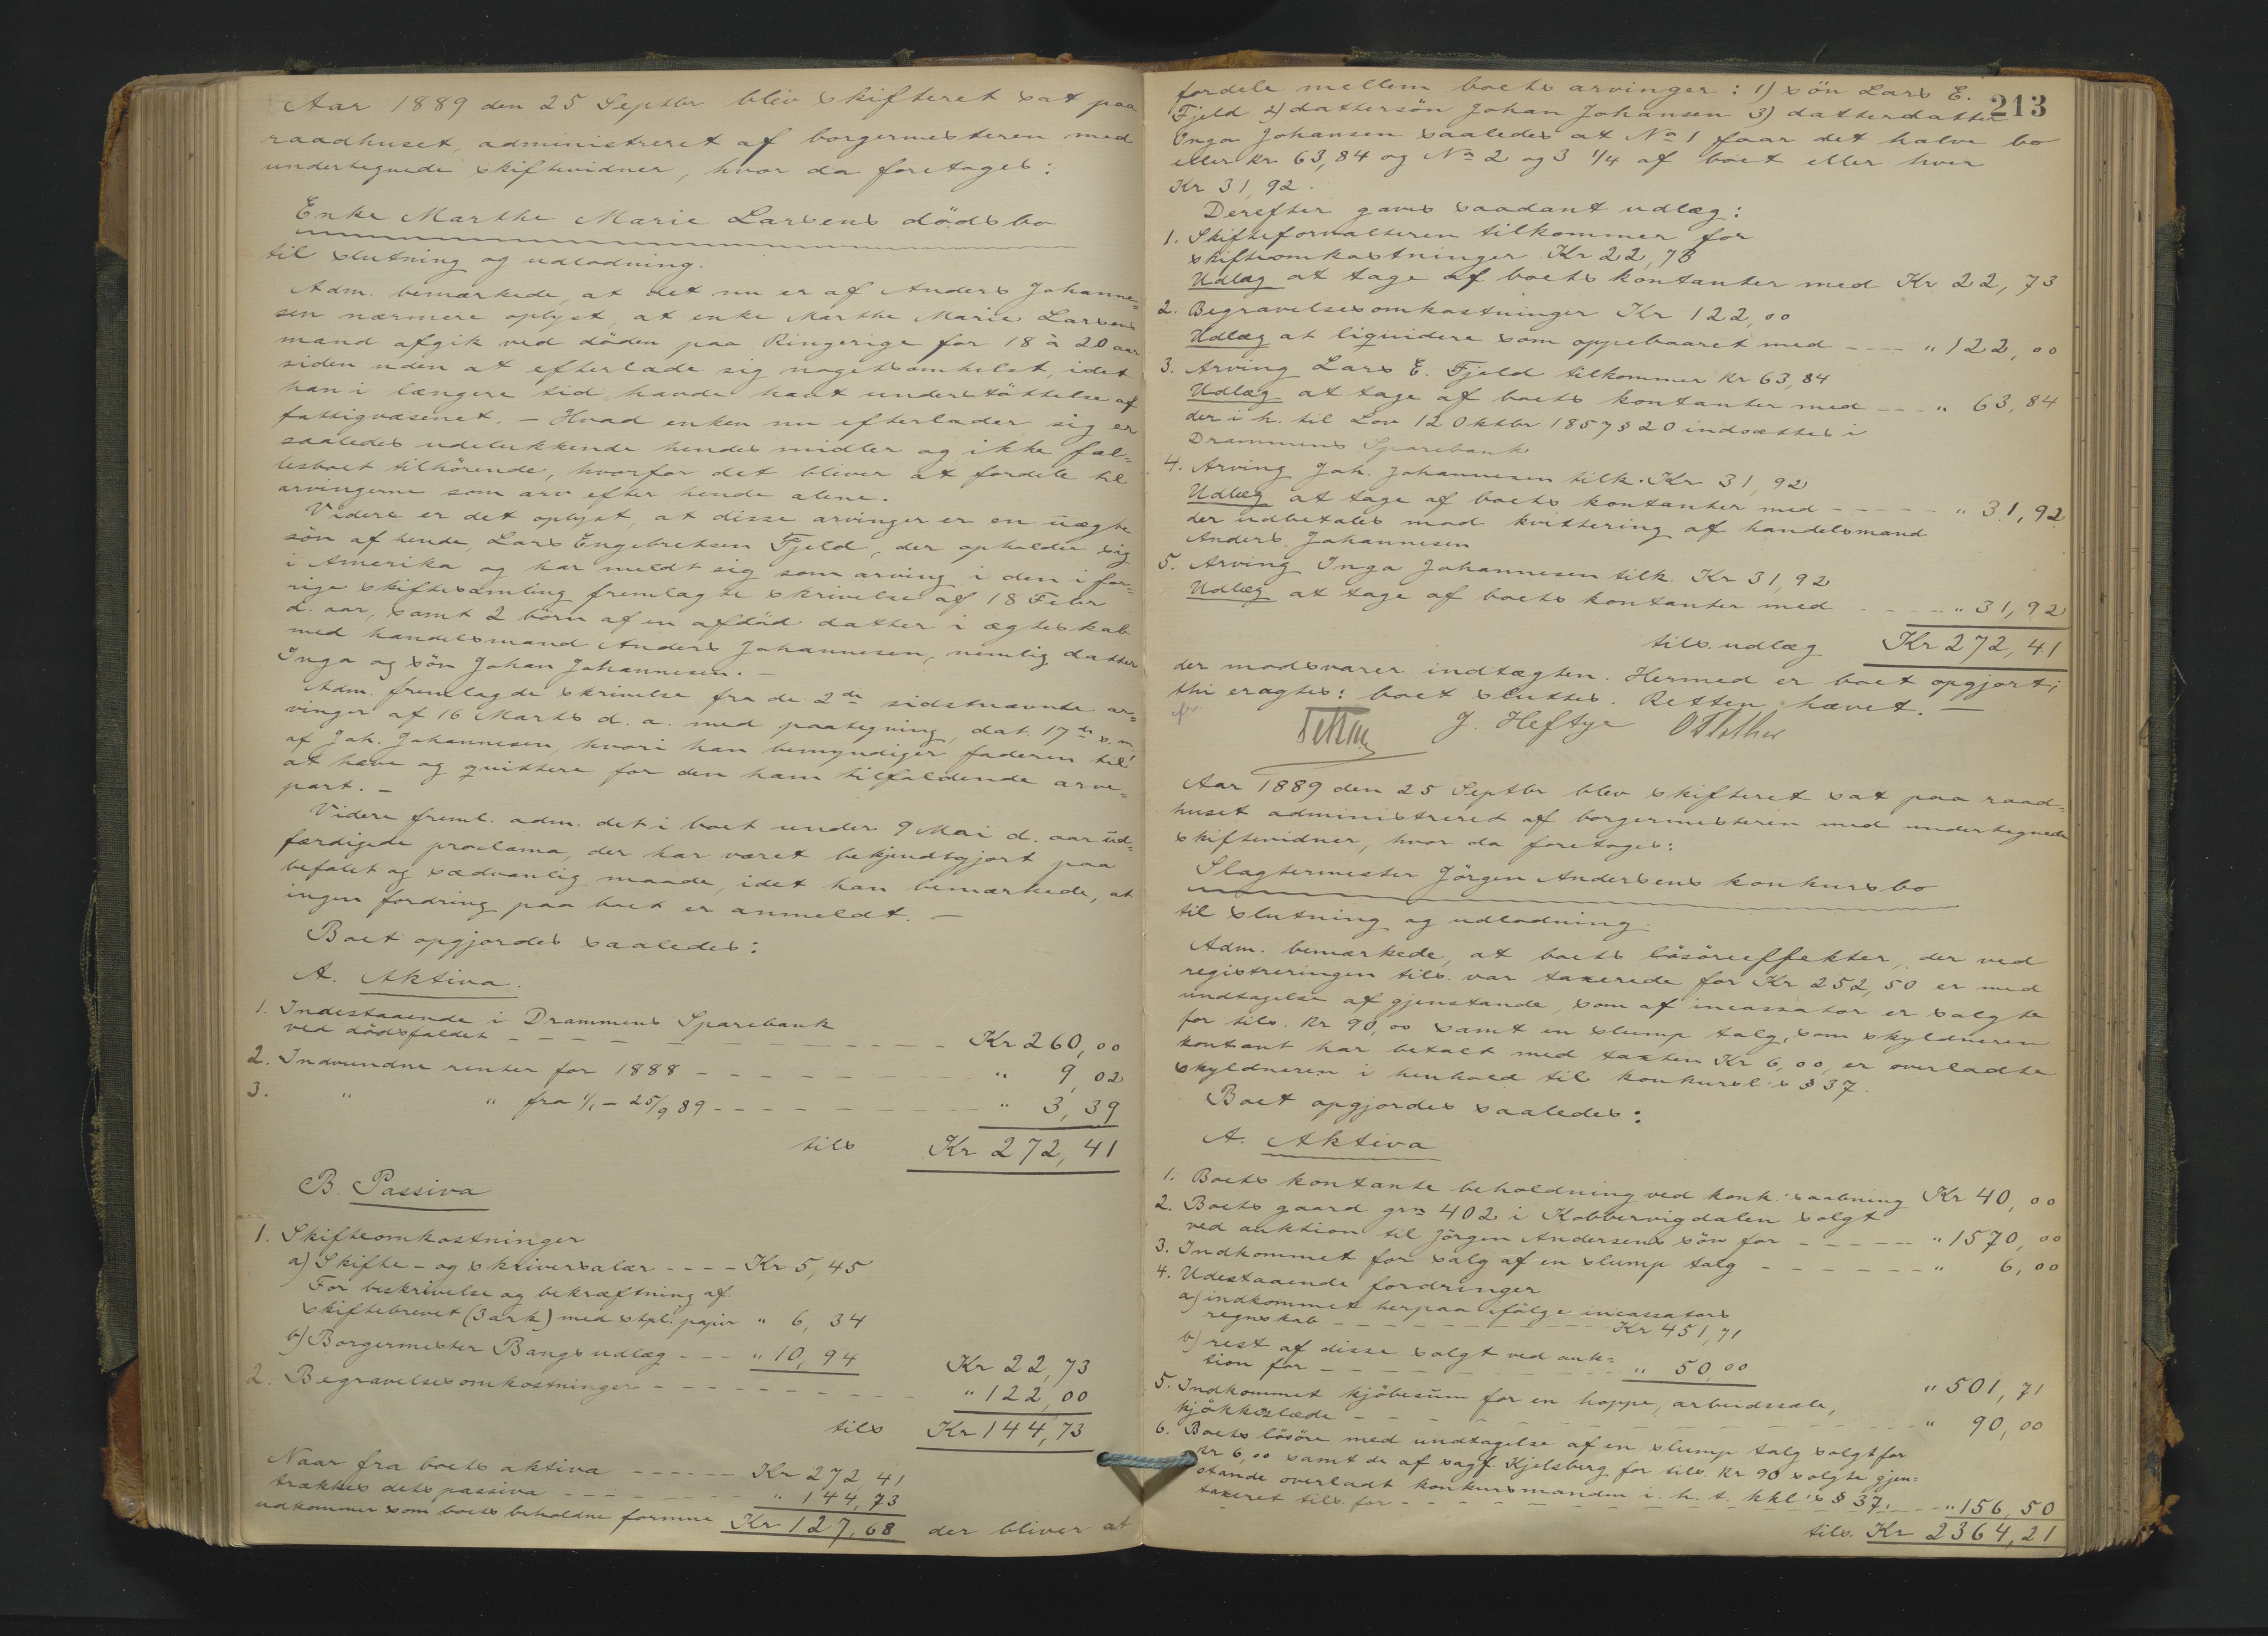 Aar 1889 den 25 Septbr blev skifteret sat paa
raadhuset, administreret af borgermesteren med
undertegnede skiftevidner, hvor da foretages:
Enke Marthe Marie Larsens dödsbo
til slutning og udlodning.
Adm. bemærkede, at det nu er af Anders Johanne=
sen nærmere oplyst, at enke Marthe Marie Larsens
mand afgik ved döden paa Ringerige for 18 à 20 aar
siden uden at efterlade sig nogetsomhelst, idet
han i længere tid havde havt understöttelse af
fattigvæsenet. — Hvad enken nu efterlader sig er
saaledes udelukkende hendes midler og ikke fæl=
lesboet tilhörende, hvorfor det bliver at fordele til
arvingerne som arv efter hende alene.
Videre er det oplyst, at disse arvinger er en uægte
sön af hende, Lars Engebretsen Fjeld, der opholder sig
i Amerika og har meldt sig som arving i den i for=
rige skiftesamling fremlagte skrivelse af 18 Febr
d. aar, samt 2 börn af en afdöd datter i ægteskab
med handelsmand Anders Johannesen, nemlig datter
Inga og sön Johan Johannesen. —
Adm. fremlagde skrivelse fra de 2de sidstnævnte ar=
vinger af 16 Marts d. a. med paategning, dat. 17de s. m.
af Joh. Johannesen, hvori han bemyndiger faderen til
at hæve og quittere for den ham tilfaldende arve=
part. —
Videre freml. adm. det i boet under 9 Mai d. aar ud=
færdigede proclama, der har været bekjendtgjort paa
befalet og sædvanlig maade, idet han bemærkede, at
ingen fordring paa boet er anmeldt. —
Boet opgjordes saaledes:
A. Aktiva.
1. Indestaaende i Drammens Sparebank
ved dödsfaldet - - - - - Kr 260,00
2. Indvundne renter for 1888 - - - - - " 9,02
3. " " fra 1/1 – 25/9 89 - - - - - " 3,39
tils Kr 272,41
B. Passiva
1. Skifteomkostninger
a) Skifte- og skriversalær - - - - Kr 5,45
For beskrivelse og bekræftning af
skiftebrevet (3 ark) med stpl. papir " 6,34
b) Borgermester Bangs udlæg - - - " 10,94 Kr 22,73
2. Begravelsesomkostninger - - - - - " 122,00
tils Kr 144,73
Naar fra boets aktiva - - - - - Kr 272,41
trækkes dets passiva - - - - - " 144,73
udkommer som boets beholdne formue Kr 127,68 der bliver at
213
fordele mellem boets arvinger: 1) sön Lars E.
Fjeld 2) dattersön Johan Johansen 3) datterdatter
Inga Johansen saaledes at No 1 faar det halve bo
eller kr 63,84 og No 2 og 3 1/4 af boet eller hver
Kr 31,92.
Derefter gaves saadant udlæg:
1. Skifteforvalteren tilkommer for
skifteomkostninger Kr 22,73
Udlæg at tage af boets kontanter med Kr 22,73
2. Begravelsesomkostninger Kr 122,00
Udlæg at liquidere som oppebaaret med - - - - " 122,00
3. Arving Lars E. Fjeld tilkommer kr 63,84
Udlæg at tage af boets kontanter med - - - " 63,84
der i h. til Lov 12 Oktbr 1857 § 20 indsættes i
Drammens Sparebank
4. Arving Joh. Johannesen tilk. Kr 31,92
Udlæg at tage af boets kontanter med - - - - - " 31,92
der udbetales mod kvittering af handelsmand
Anders Johannesen
5. Arving Inga Johannesen tilk. Kr 31,92
Udlæg at tage af boets kontanter med - - - - - " 31,92
tils. udlæg Kr 272,41
der modsvarer indtægten. Hermed er boet opgjort;
thi eragtes: boet sluttes. Retten hævet. —
J. Heftye
Aar 1889 den 25 Septbr blev skifteret sat paa raad=
huset administreret af borgermesteren med undertegnede
skiftevidner, hvor da foretages:
Slagtermester Jörgen Andersens konkursbo
til slutning og udlodning.
Adm. bemærkede, at boets lösöreeffekter, der ved
registreringen tils. var taxerede for Kr 252,50 er med
undtagelse af gjenstande, som af incassator er solgte
for tils. Kr 90,00 samt en slump talg, som skyldneren
kontant har betalt med taxten Kr 6,00, er overladte
skyldneren i henhold til konkursl's § 37.
Boet opgjordes saaledes:
A. Aktiva
1. Boets kontante beholdning ved konk.'s aabning Kr 40,00
2. Boets gaard grn 402 i Kobbervigdalen solgt
ved auktion til Jörgen Andersens sön for - - - - - " 1570,00
3. Indkommet for salg af en slump talg - - - - - " 6,00
4. Udestaaende fordringer
a) indkommet herpaa ifölge incassators
regnskab - - - - - Kr 451,71
b) rest af disse solgt ved auk=
tion for - - - - - " 50,00
" 501,71
5. Indkommet kjöbesum for en hoppe, arbeidssæle,
kjökkeslæde - - - - - " 90,00
6. Boets lösöre med undtagelse af en slump talg solgt for
Kr 6,00 samt de af sagf. Kjelsberg for tils. Kr 90 solgte gjen=
stande overladt konkursmanden i. h. t. kkl's § 37.
taxeret tils. for - - - - - " 156,50
tils. Kr 2364,21